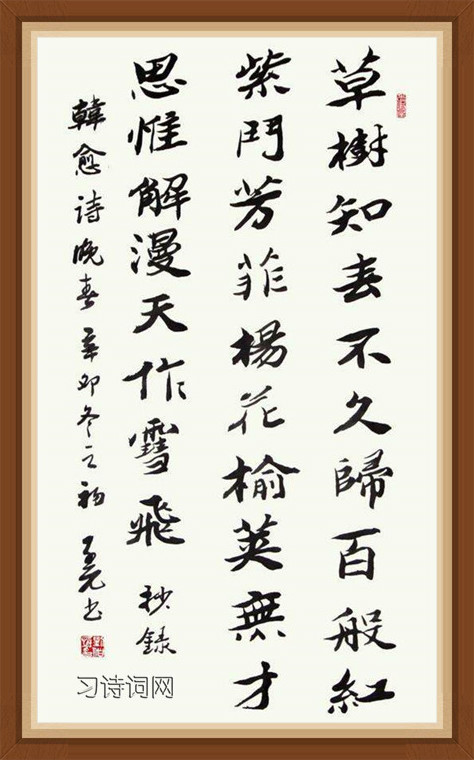 草樹知去不久歸百般紅
紫鬥芳菲楊花榆莢無才
思惟解漫天作雪飛 抄錄
韓愈詩晚春 辛卯冬之初 书
习诗词网